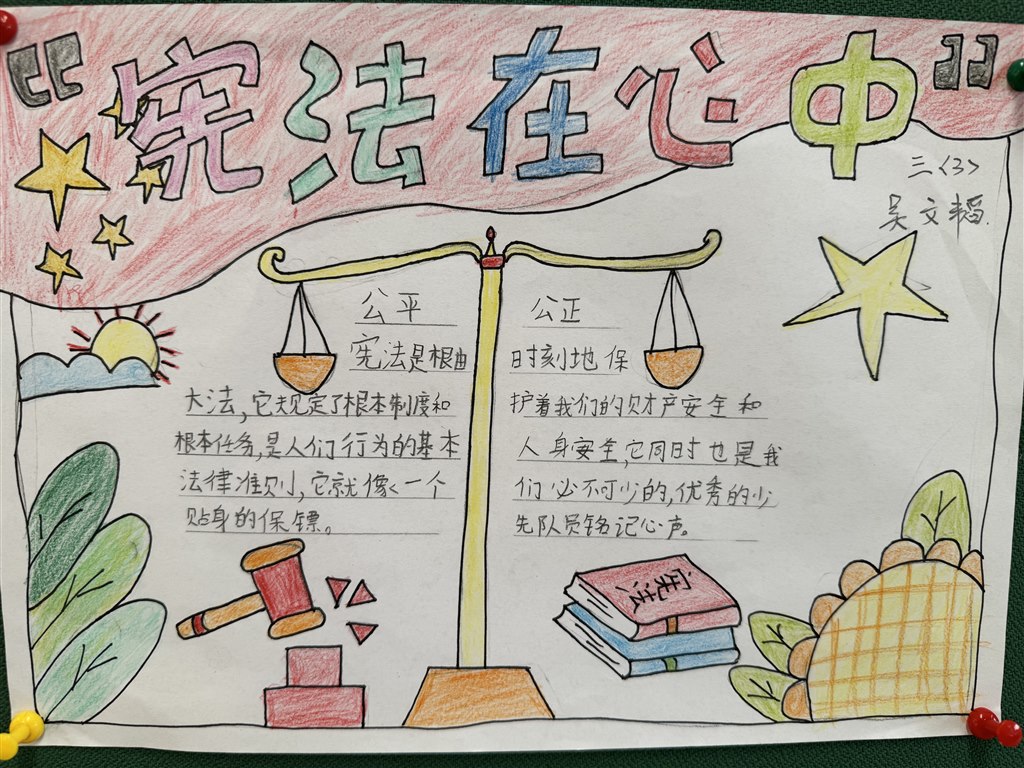 “宪法在心中”
三〈3〉
吴文韬.
公平
宪法是根由
大法,它规定了根本制度和
根本任务,是人们行为的基本
法律准则,它就像一个
贴身的保镖。
公正
时刻地保
护着我们的财产安全和
人身安全,它同时也是我
们必不可少的,优秀的少
先队员铭记心声。
宪法